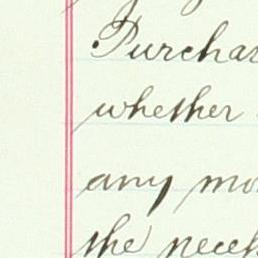 Purchas
whether
any mo
the necess